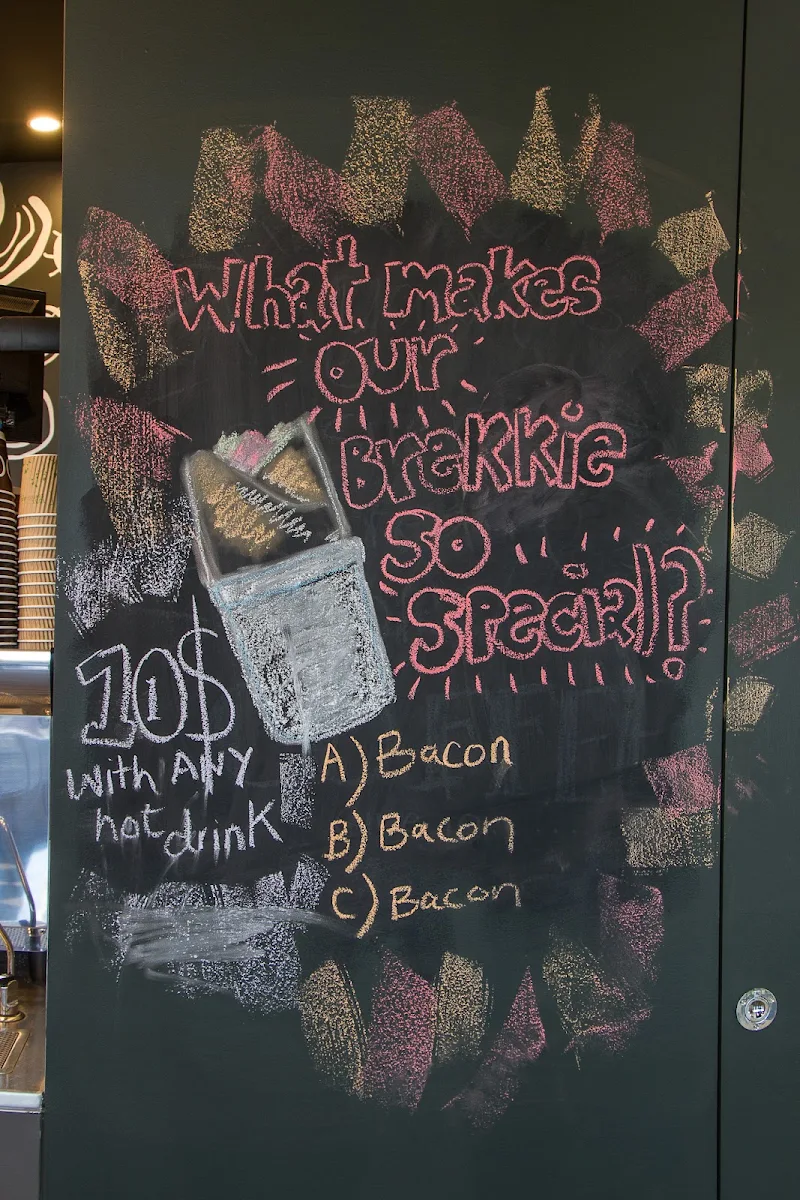 What makes
our
Brekkie
So
Special?
10$
with ANY
hot drink
A) Bacon
B) Bacon
C) Bacon